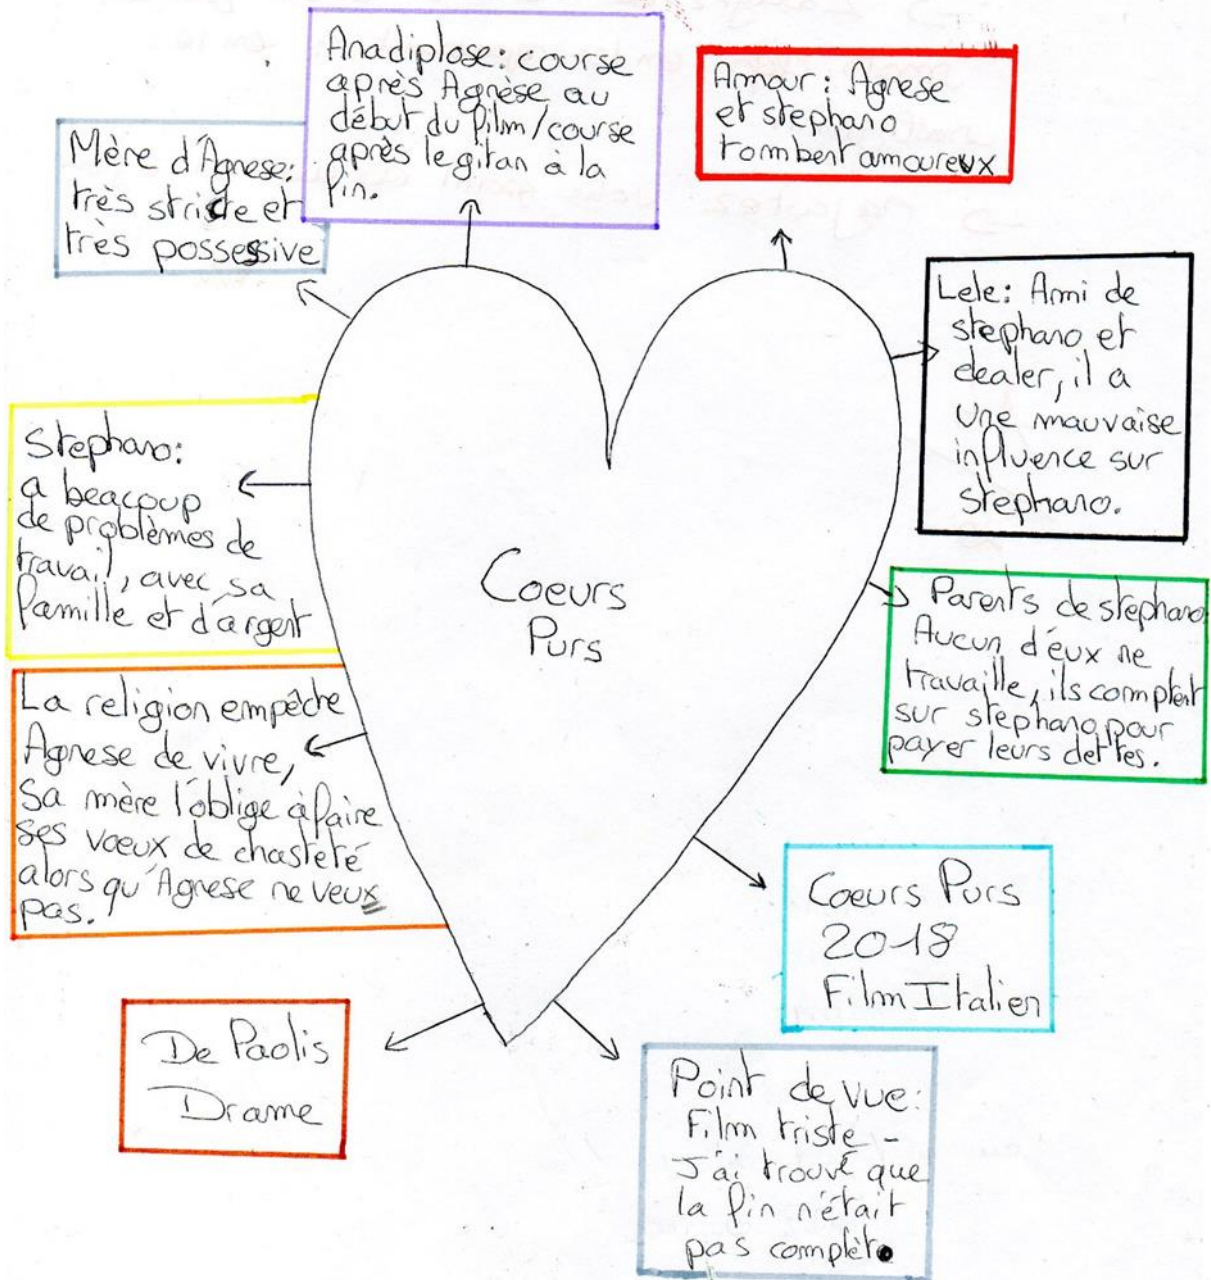 Anadiplose: course
après Agnèse au
début du film/course
après le gitan à la
fin.
Amour: Agnese
et stephano
tombent amoureux
Mère d'Agnese:
très stricte et
très possessive
Lele: Ami de
stephano et
dealer, il a
une mauvaise
influence sur
stephano.
Stephano:
a beacoup
de problèmes de
travail, avec sa
famille et d'argent
Coeurs
Purs
Parents de stephano
Aucun d'eux ne
travaille, ils comptent
sur stephano pour
payer leurs dettes.
La religion empêche
Agnese de vivre,
Sa mère l'oblige à faire
ses vœux de chasteté
alors qu'Agnese ne veux
pas.
Coeurs Purs
2018
Film Italien
De Paolis
Drame
Point de vue:
Film triste -
J'ai trouvé que
la fin n'était
pas complète